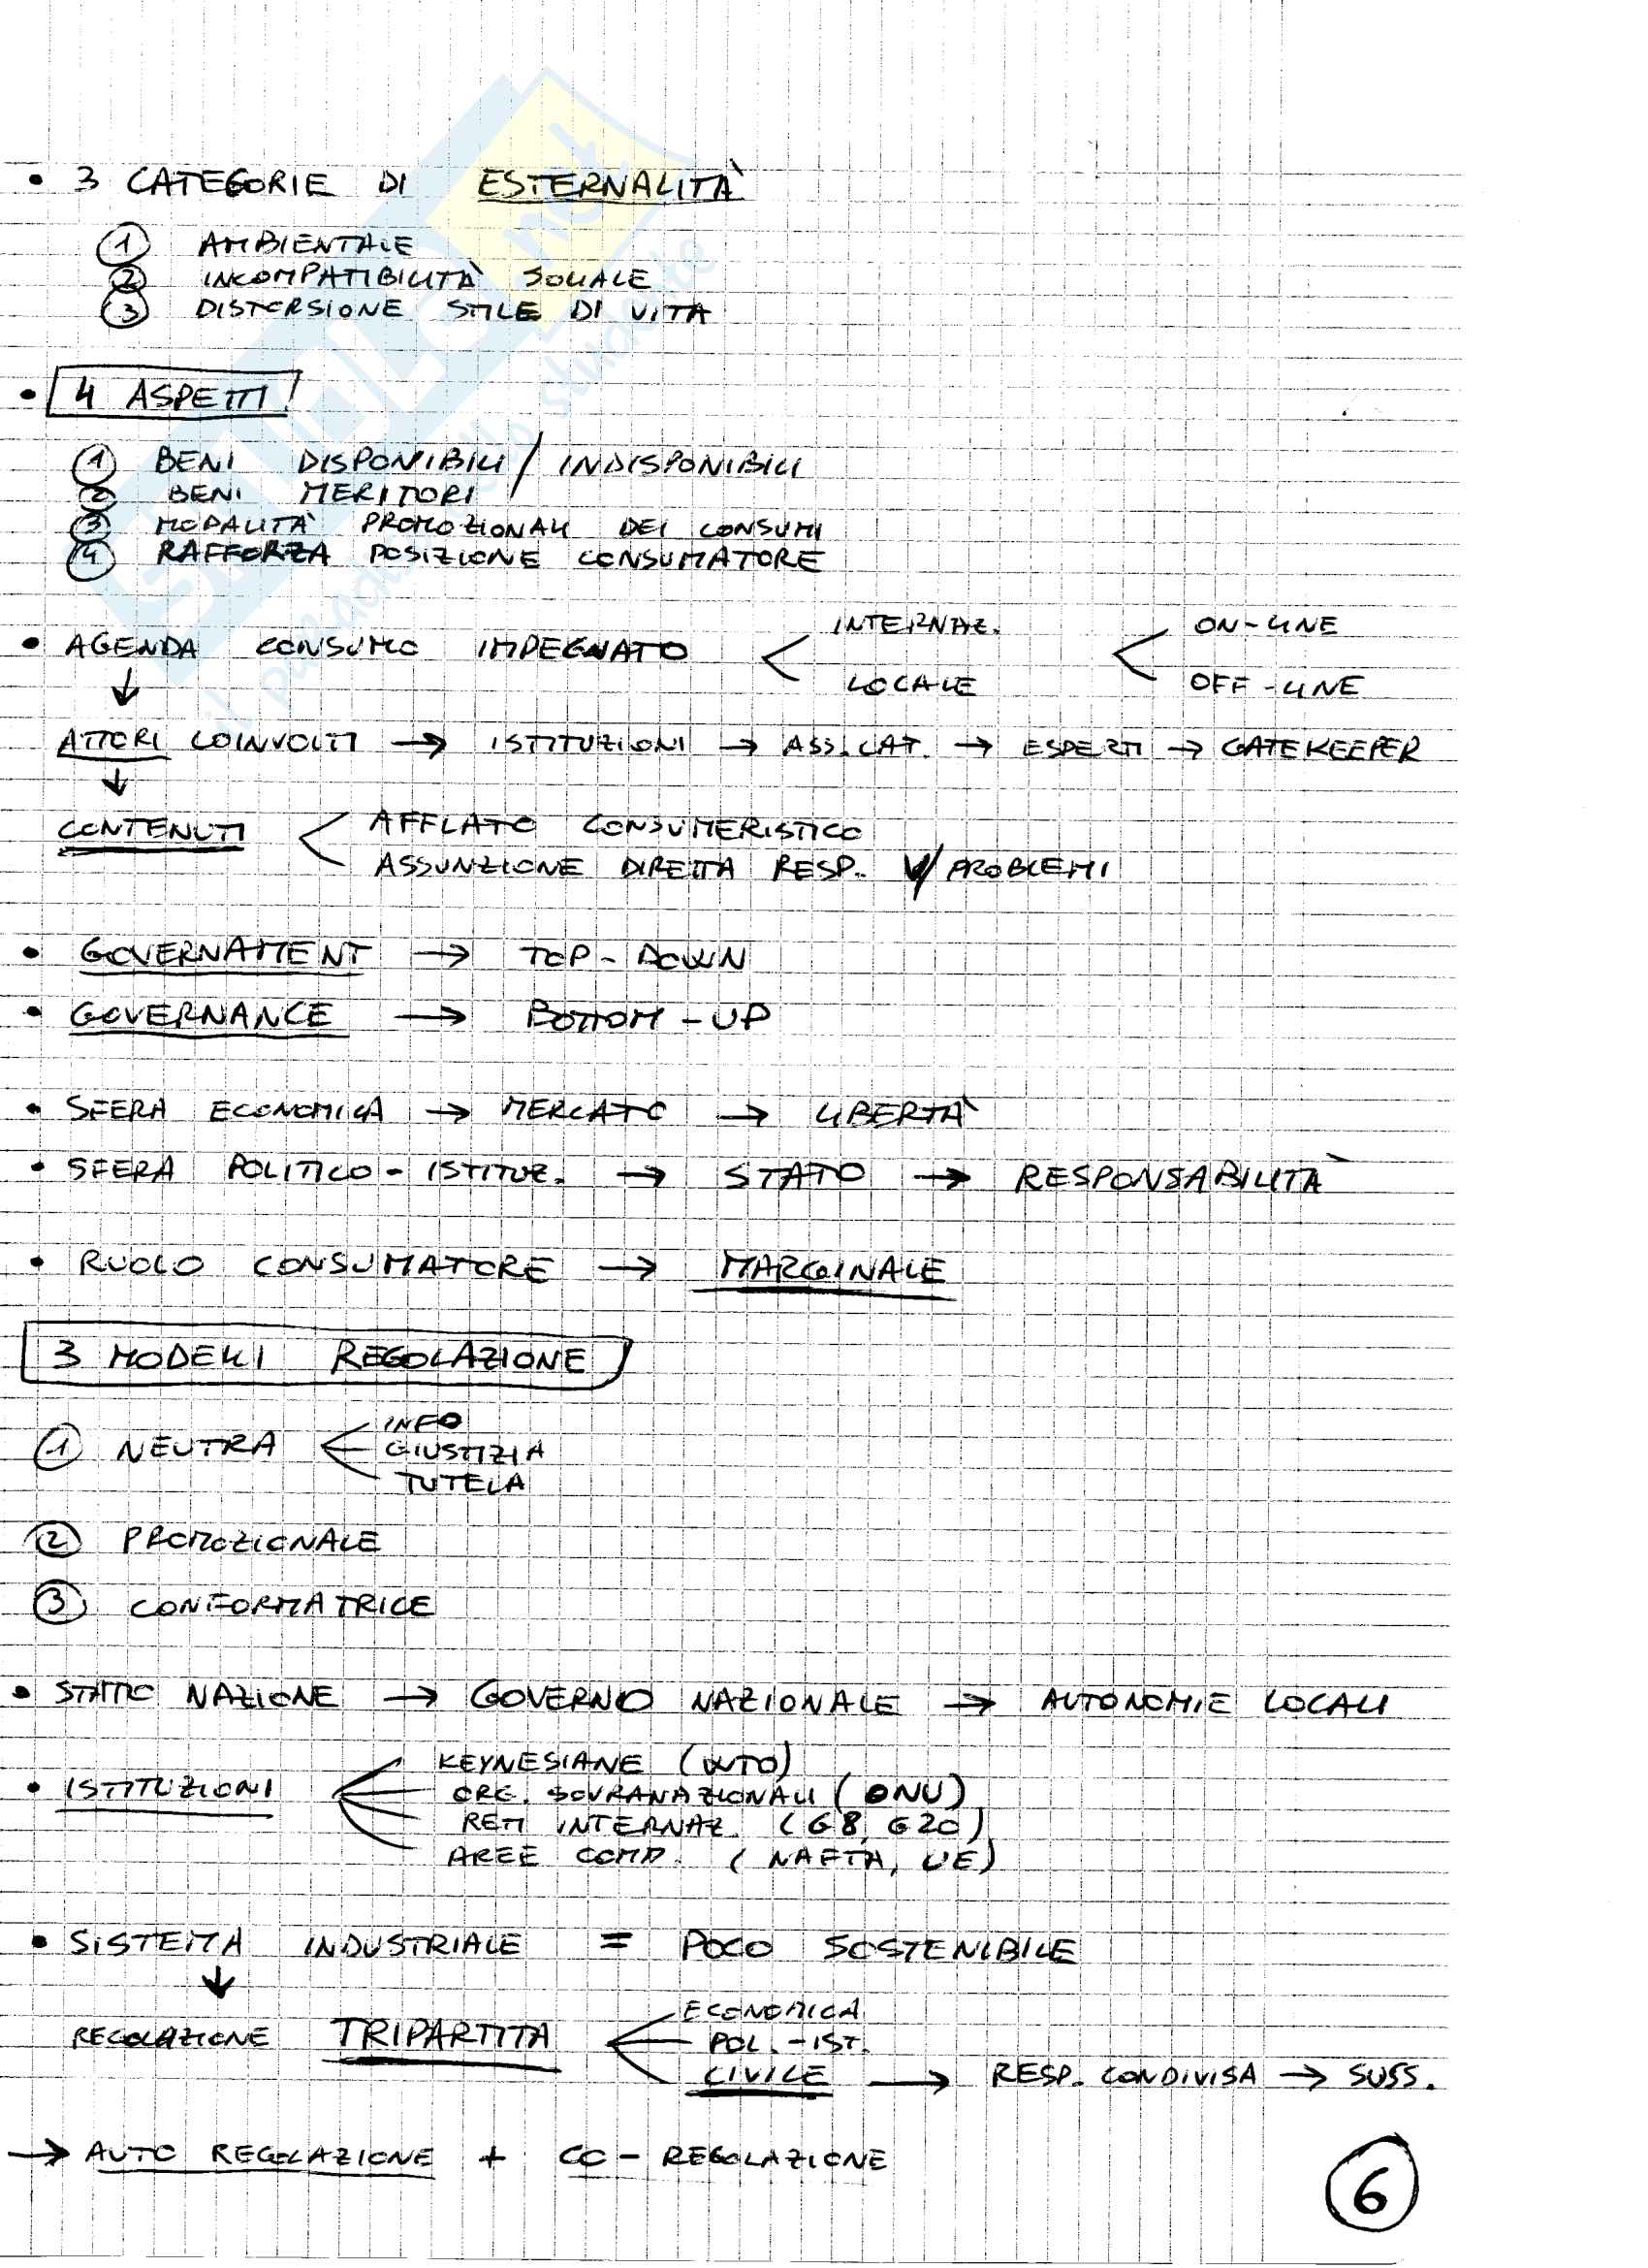 • 3 CATEGORIE DI ESTERNALITÀ
① AMBIENTALE
② INCOMPATIBILITÀ SOCIALE
③ DISTORSIONE STILE DI VITA
• 4 ASPETTI
① BENI DISPONIBILI / INDISPONIBILI
② BENI MERITORI
③ MODALITÀ PROMOZIONALI DEI CONSUMI
④ RAFFORZA POSIZIONE CONSUMATORE
INTERNAZ. ON-LINE
• AGENDA CONSUMO IMPEGNATO
LOCALE OFF-LINE
↓
ATTORI COINVOLTI → ISTITUZIONI → ASS. CAT. → ESPERTI → GATEKEEPER
↓
CONTENUTI AFFLATO CONSUMERISTICO
ASSUNZIONE DIRETTA RESP. PROBLEMI
• GOVERNAMENT → TOP-DOWN
• GOVERNANCE → BOTTOM-UP
• SFERA ECONOMICA → MERCATO → LIBERTÀ
• SFERA POLITICO-ISTITUZ. → STATO → RESPONSABILITÀ
• RUOLO CONSUMATORE → MARGINALE
3 MODELLI REGOLAZIONE
INFO
① NEUTRA GIUSTIZIA
TUTELA
② PROMOZIONALE
③ CONFORMATRICE
• STATO NAZIONE → GOVERNO NAZIONALE → AUTONOMIE LOCALI
KEYNESIANE (WTO)
• ISTITUZIONI ORG. SOVRANAZIONALI (ONU)
RETI INTERNAZ. (G8, G20)
AREE COMP. (NAFTA, UE)
• SISTEMA INDUSTRIALE = POCO SOSTENIBILE
↓
ECONOMICA
REGOLAZIONE TRIPARTITA POL.-IST.
CIVILE → RESP. CONDIVISA → SUSS.
→ AUTO REGOLAZIONE + CO-REGOLAZIONE
6